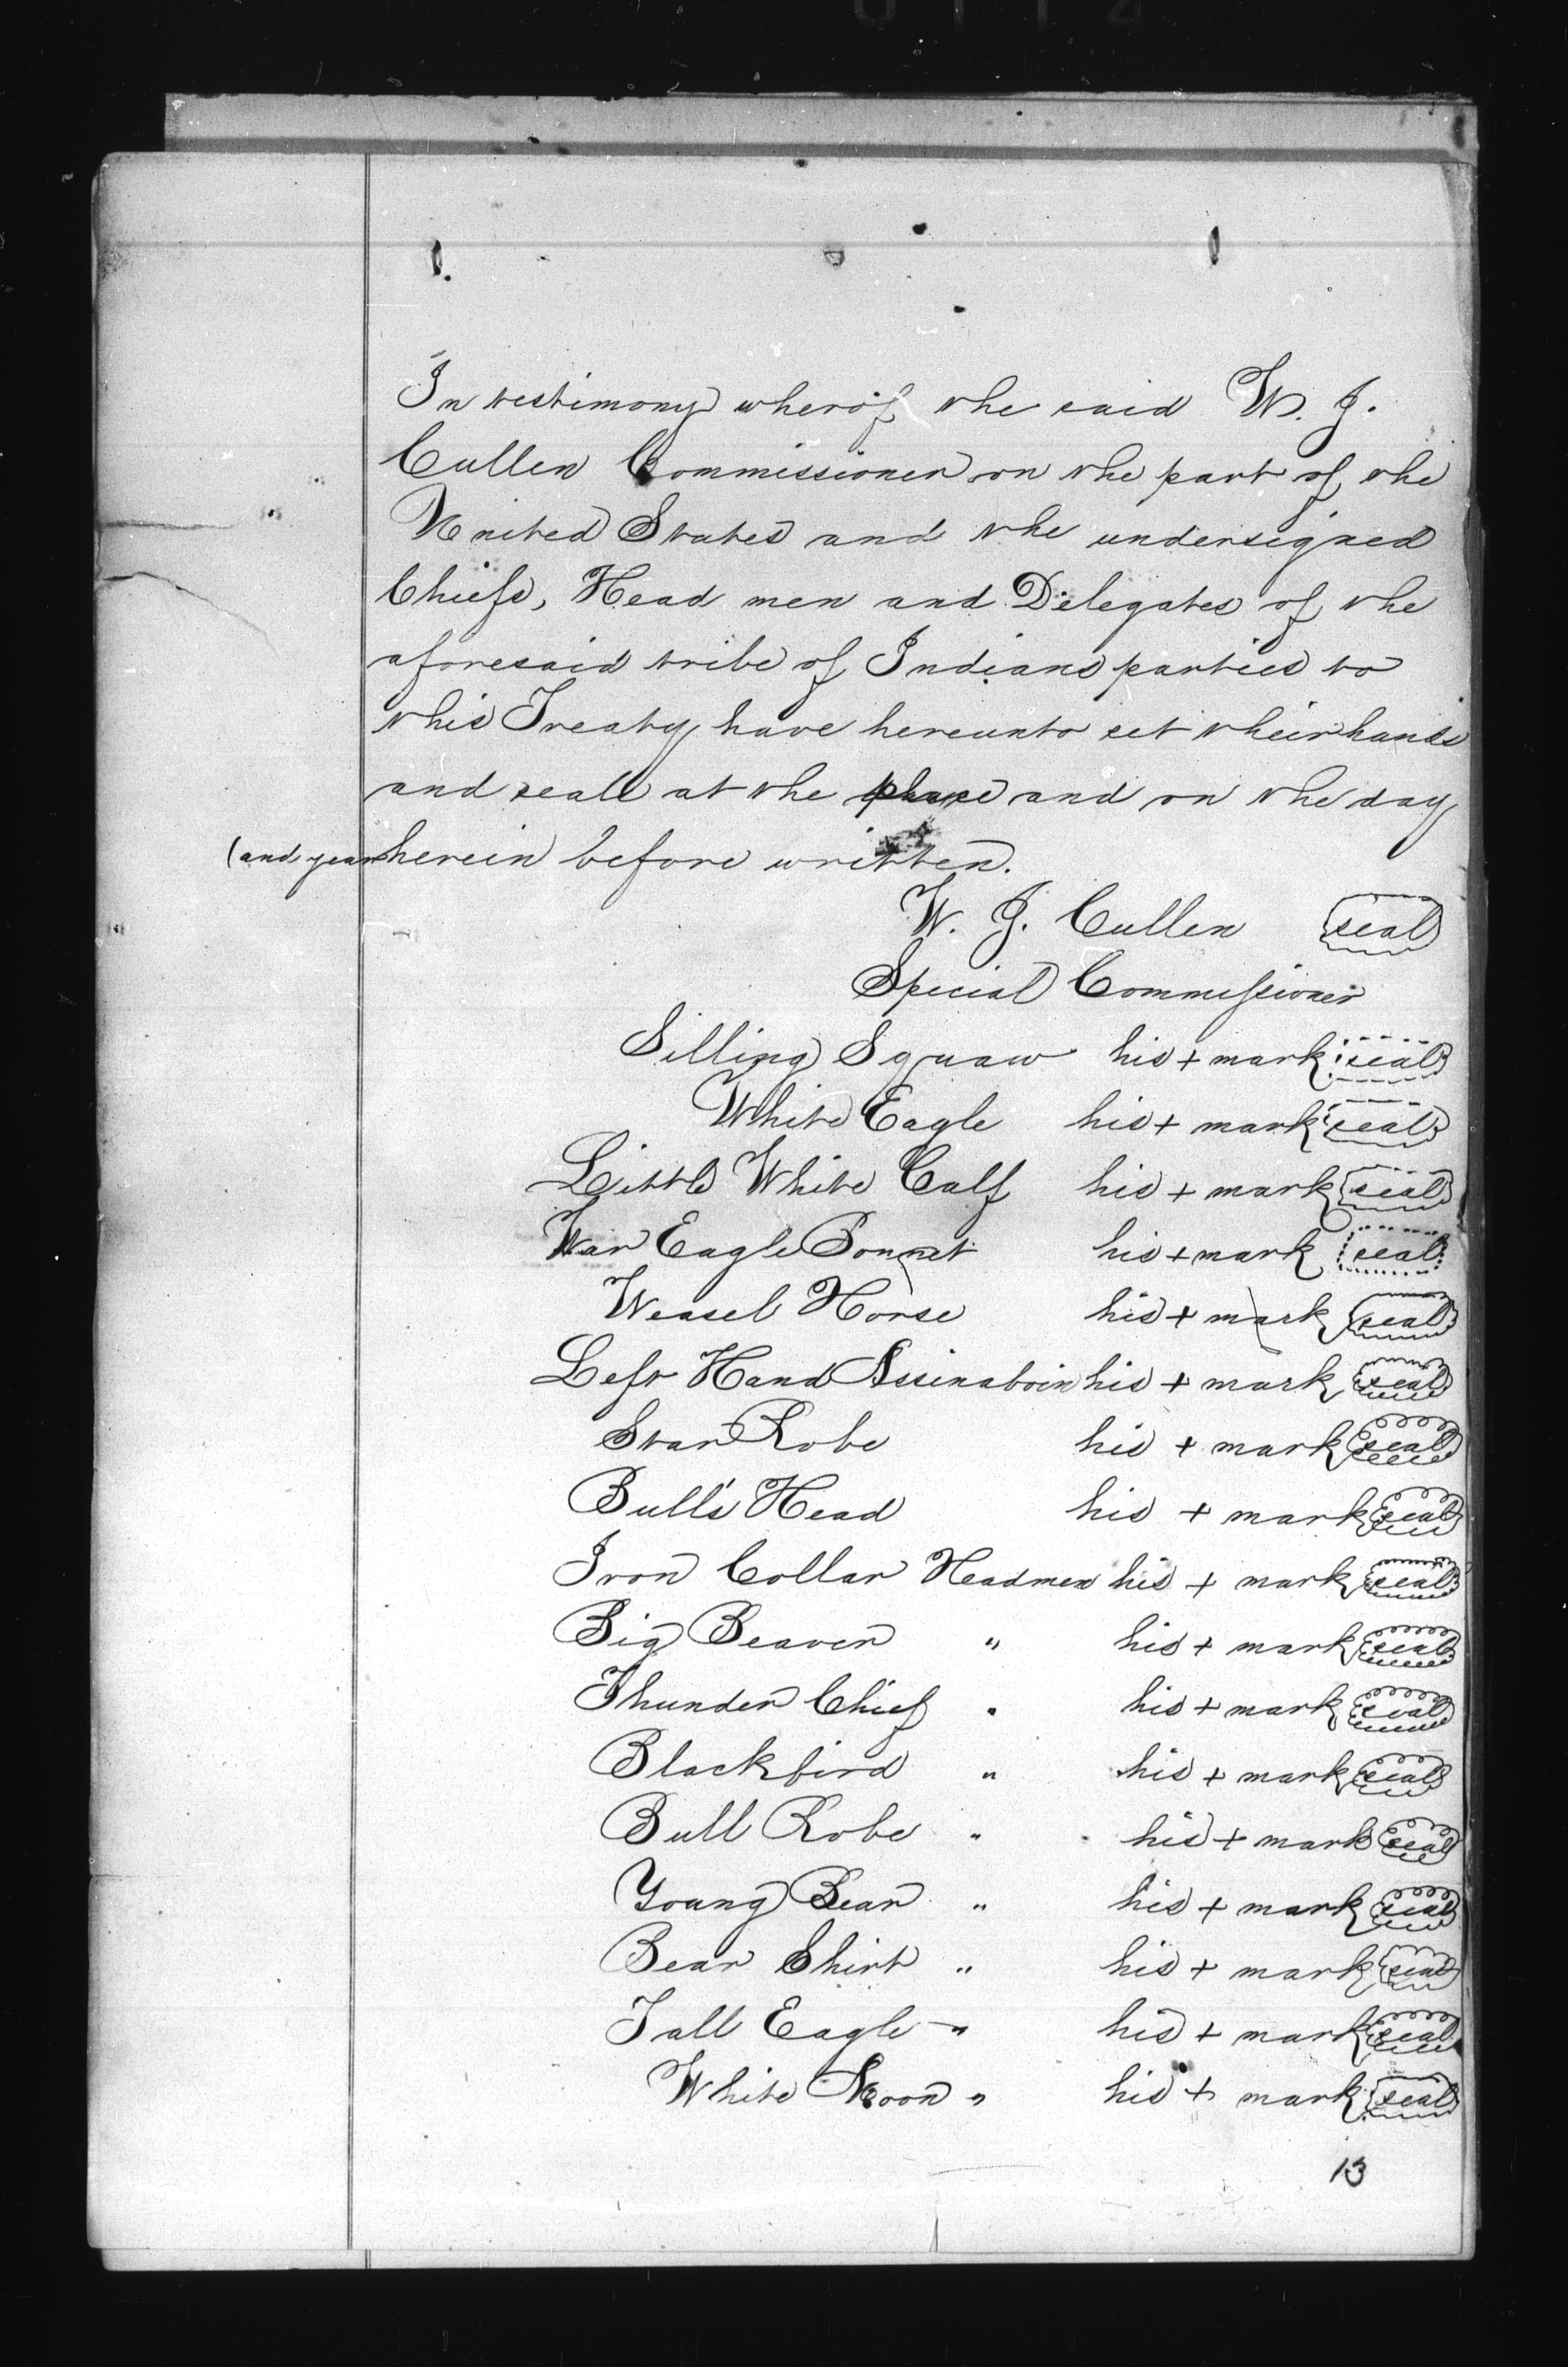 In testimony wherof the said W. J.
Cullen Commissioner on the part of the
United States and the undersigned
Chiefs, Head men and Delegates of the
aforesaid tribe of Indians parties to
this Treaty have hereunto set their hands
and seall at the place and on the day
(and year herein before written.
W. J. Cullen seal
Special Commissioner
Silling Squaw his + mark seal
White Eagle his + mark seal
Little White Calf his + mark seal
War Eagle Bonnet his + mark seal
Weasel Horse his + mark seal
Left Hand Assinaboin his + mark seal
Star Robe his + mark seal
Bull's Head his + mark seal
Iron Collar Headmen his + mark seal
Big Beaver " his + mark seal
Thunder Chief " his + mark seal
Blackbird " his + mark seal
Bull Robe " his + mark seal
Young Bear " his + mark seal
Bear Shirt " his + mark seal
Tall Eagle " his + mark seal
White Moon " his + mark seal
13